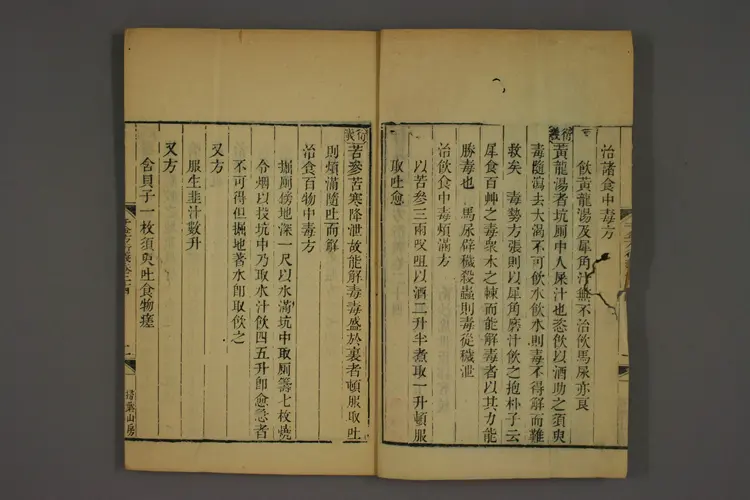 治諸食中毒方
飲黃龍湯及犀角汁無不治飲馬尿亦良
衍義
黃龍湯者坑厠中人屎汁也恣飲以酒助之須臾
毒隨瀉去大渴不可飲水飲水則毒不得解而難
救矣 毒勢方張則以犀角磨汁飲之抱朴子云
犀食百艸之毒眾木之棘而能解毒者以其力能
勝毒也 馬尿僻穢殺蟲則毒從穢泄
治飲食中毒煩滿方
以苦參三兩㕮咀以酒二升半煮取一升頓服
取吐愈
衍義
苦參苦寒降泄故能解毒毒盛於裏者頓服取吐
則煩滿隨吐而解
治食百物中毒方
掘厠傍地深一尺以水滿坑中取厠籌七枚燒
令烟以投坑中乃取水汁飲四五升卽愈急者
不可得但掘地著水卽取飲之
又方
服生韭汁數升
又方
含貝子一枚須臾吐食物瘥
二
掃葉山房